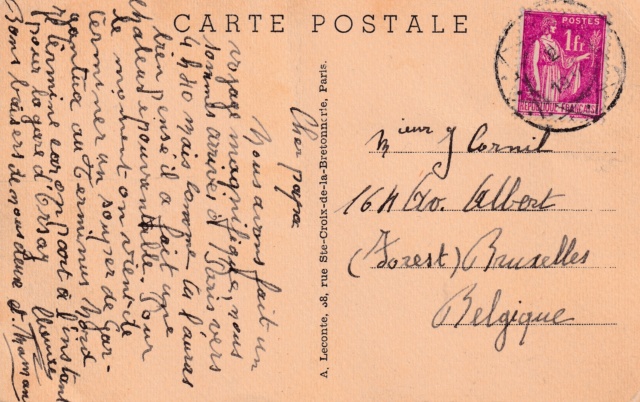 CARTE POSTALE
Cher papa
Nous avons fait un
voyage magnifique, nous
sommes arrivés à Paris vers
4 h 10 mais comme tu l'auras
bien pensé il a fait une
chaleur épouvantable. Pour
le moment on vient de
terminer un souper de gar-
gantua au Terminus Nord
je termine car on part à l'instant
pour la gare d'Orsay
Bons baisers de nous deux et Maman
A. Leconte, 38, rue Ste-Croix-de-la-Bretonnerie, Paris.
POSTES
1fr
REPUBLIQUE FRANÇAISE
Mieur J Cornil
164 Av. Albert
(Forest) Bruxelles
Belgique